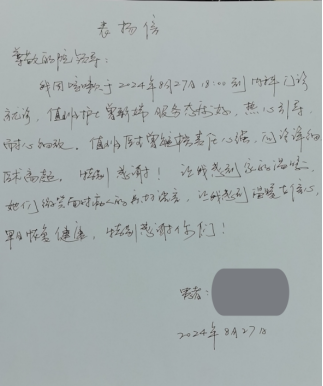 表扬信
尊敬的院领导：
我因咳嗽于2024年8月27日18:00到内科门诊
就诊，值班护士曾 服务态度好，热心引导，
耐心细致。值班医生曾 责任心强，问诊详细
医术高超。特别感谢！让我感到家的温暖，
她们微笑面对病人的 ，让我感到温暖在信心，
早日恢复健康，特别感谢你们！
患者：
2024年8月27日